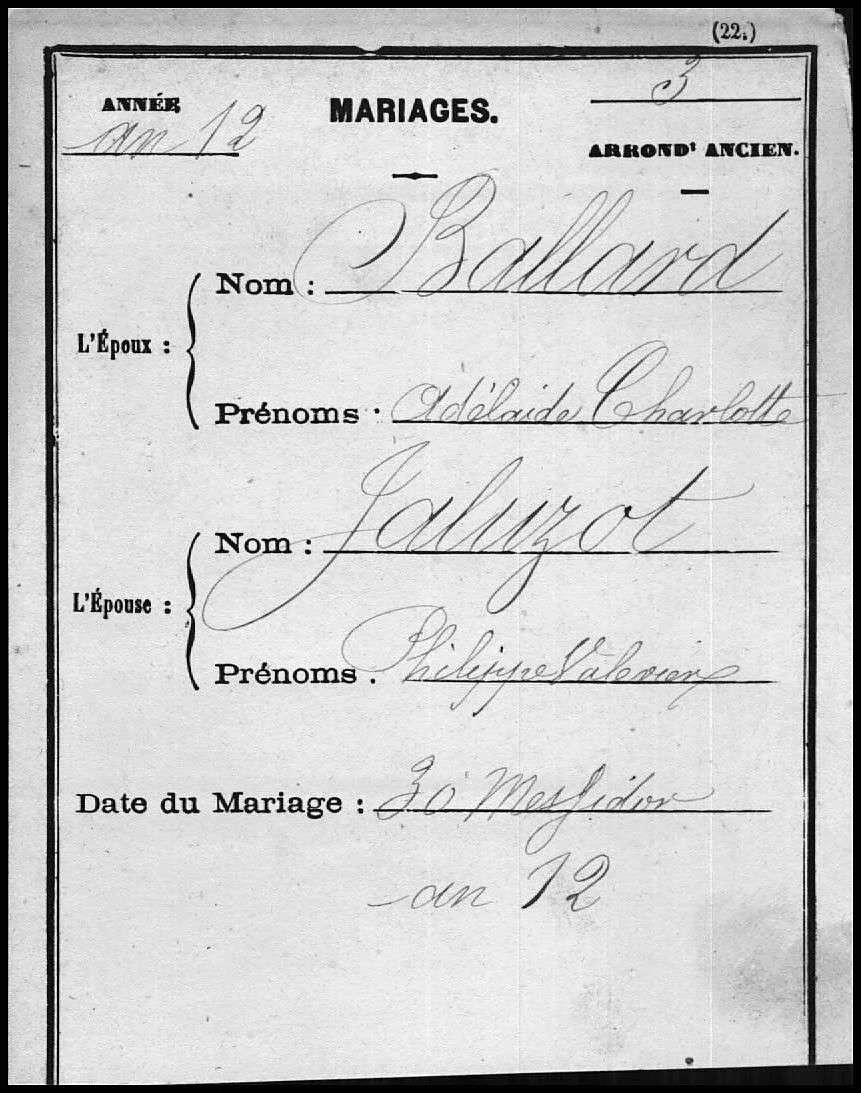 (22.)
ANNÉE
an 12
MARIAGES.
3
ARRONDt ANCIEN.
L'Époux :
Nom : Ballard
Prénoms : Adélaide Charlotte
L'Épouse :
Nom : Jaluzot
Prénoms : Philippe
Date du Mariage : 30 Messidor
an 12